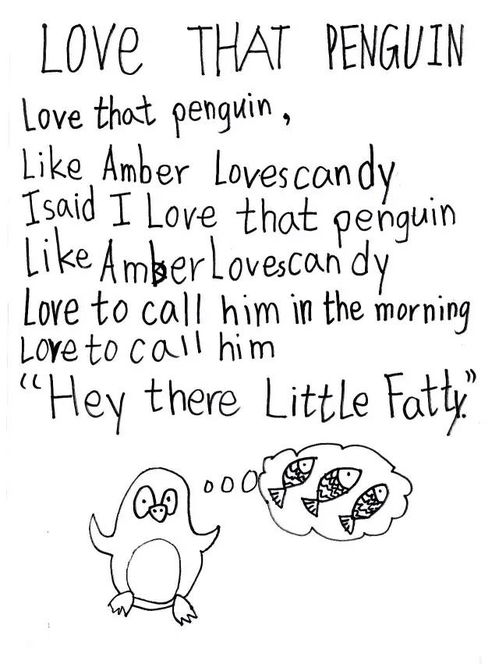 LOVE THAT PENGUIN
Love that penguin,
Like Amber Loves candy
I said I Love that penguin
Like Amber Loves candy
Love to call him in the morning
Love to call him
“Hey there Little Fatty.”